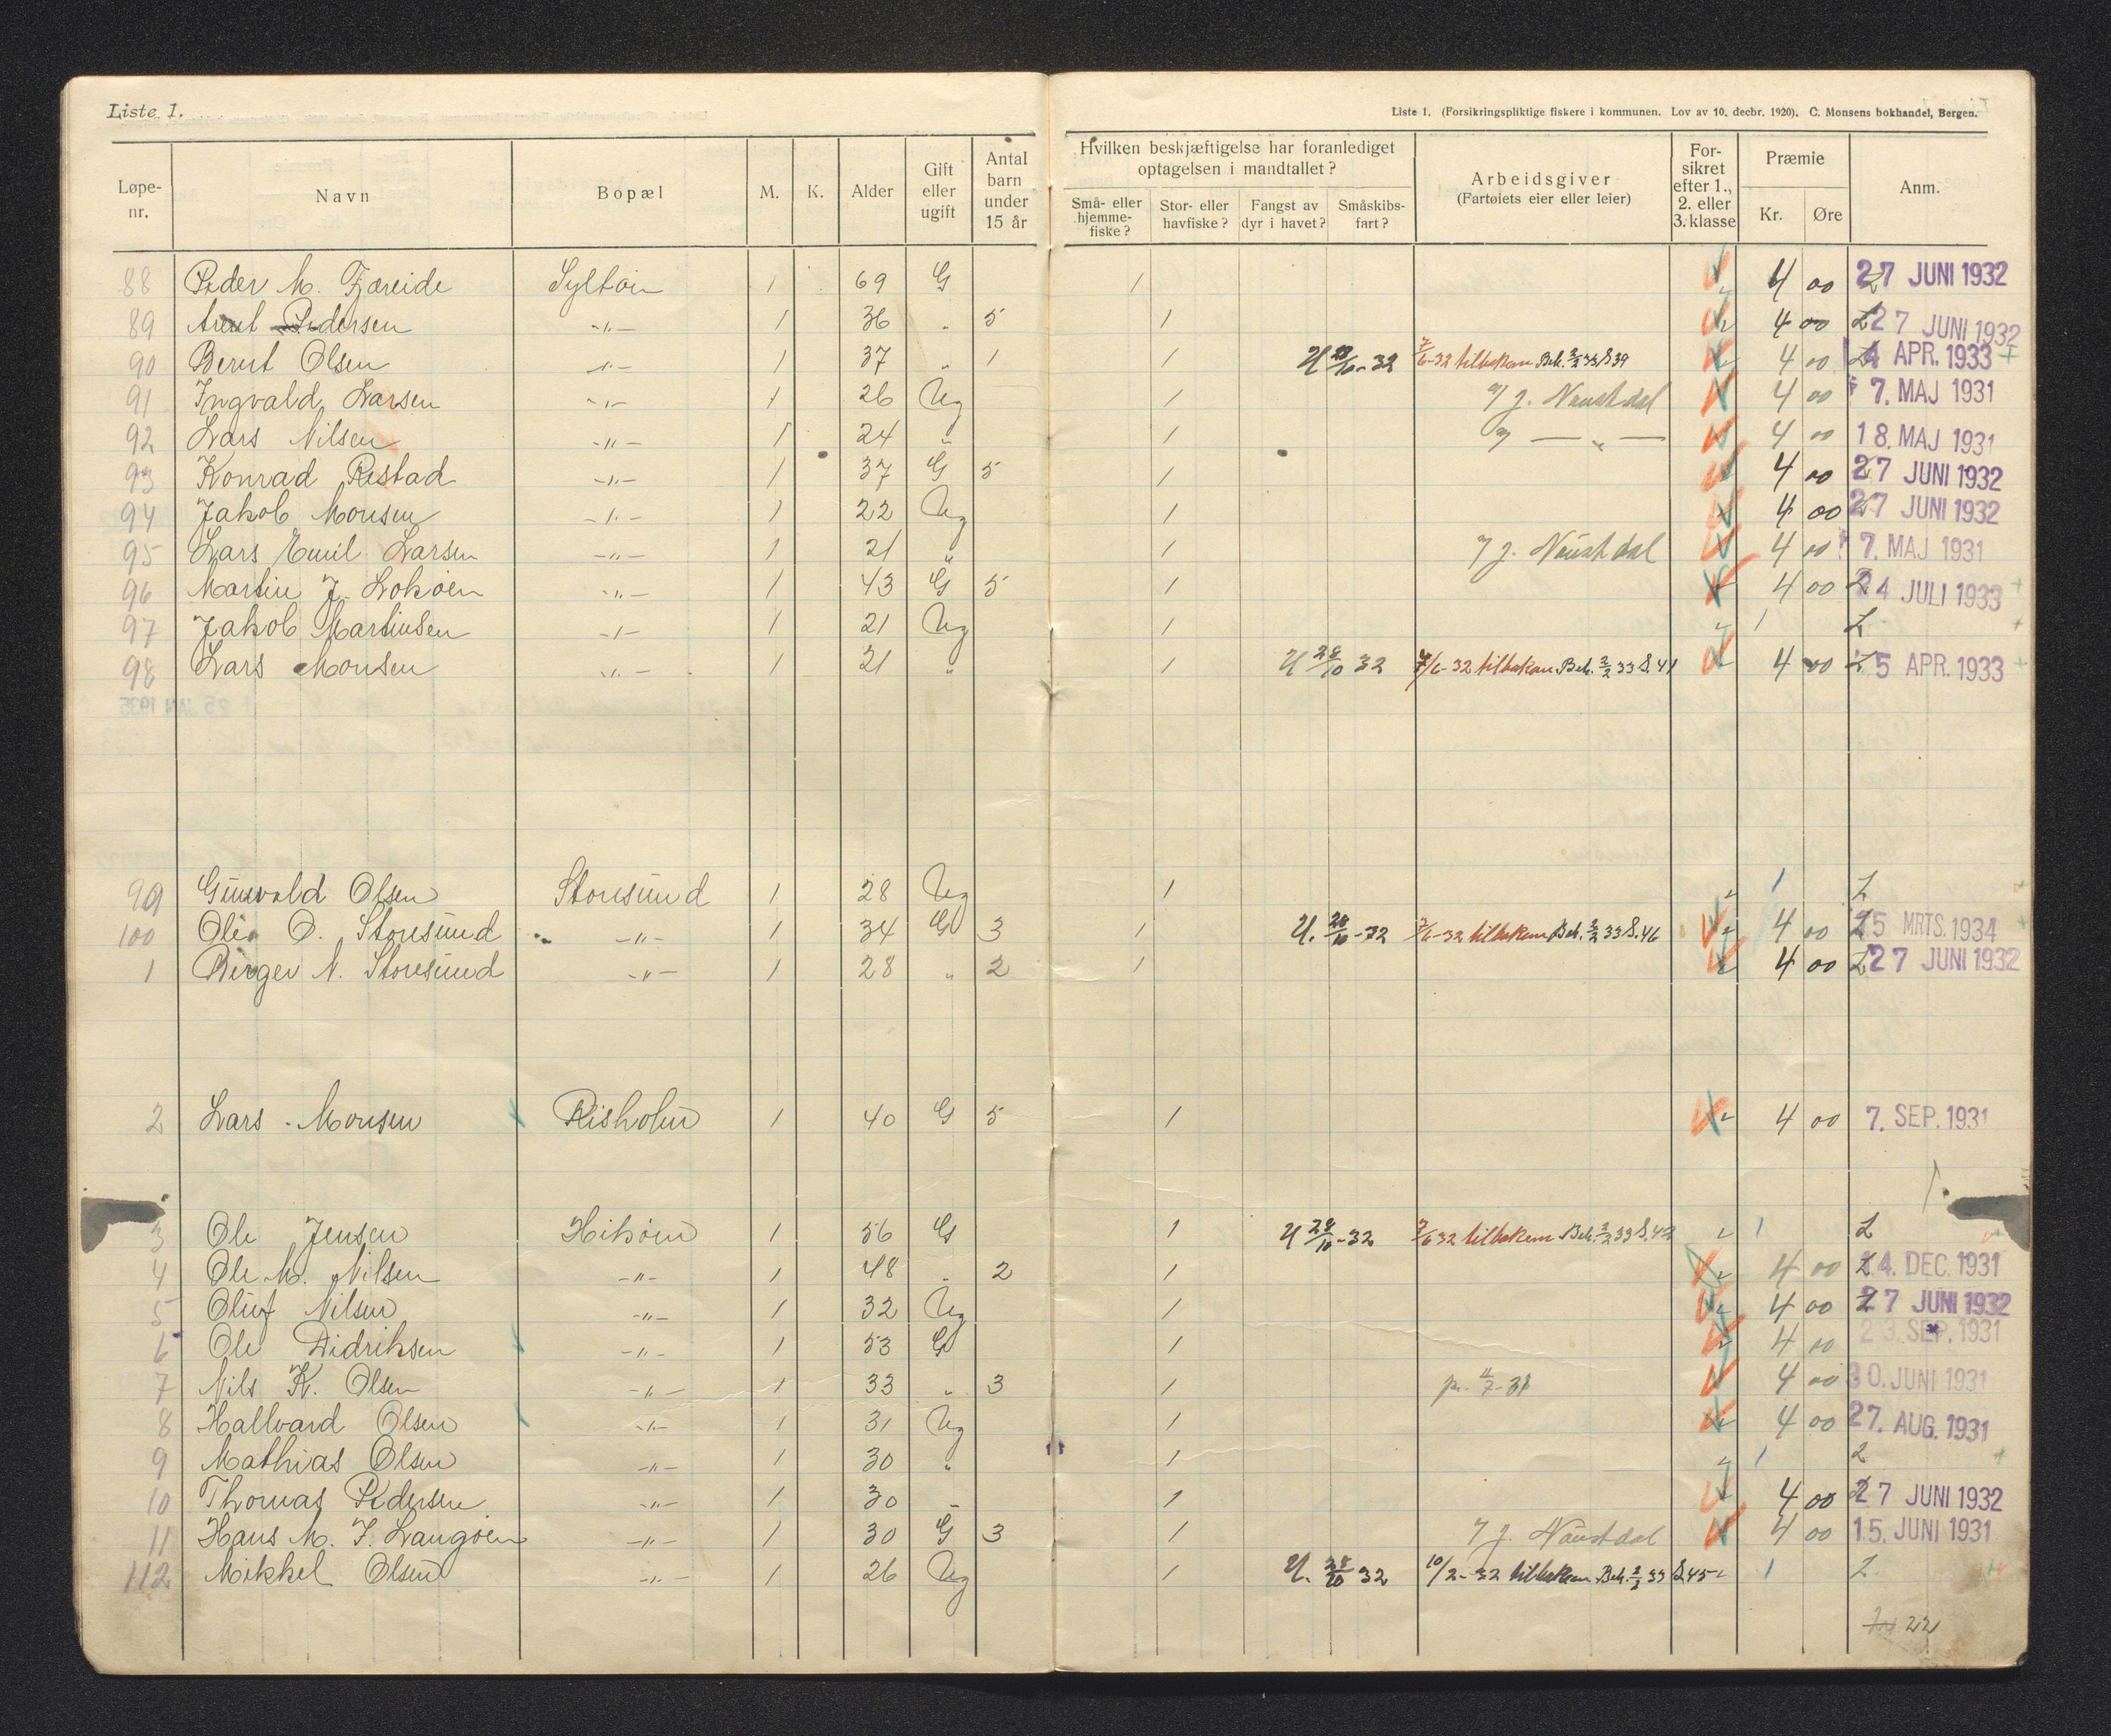 Liste 1.
Liste 1. (Forsikringspliktige fiskere i kommunen. Lov av 10. decbr. 1920). C. Monsens bokhandel, Bergen.
Løpe-nr. Navn Bopæl M. K. Alder Gift eller ugift Antal barn under 15 år Hvilken beskjæftigelse har foranlediget optagelsen i mandtallet? Små- eller hjemme-fiske? Stor- eller havfiske? Fangst av dyr i havet? Småskibs-fart? Arbeidsgiver (Fartøiets eier eller leier) For-sikret efter 1., 2. eller 3. klasse Præmie Kr. Øre Anm.
88 Peder M. Færeide Syltøin 1 69 G 1 4 00 27 JUNI 1932
89 Arent Pedersen -"- 1 36 " 5 1 4 00 27 JUNI 1932
90 Bernt Olsen -"- 1 37 " 1 1 U 28/10-32 7/6-32 tilbakem Beh. 2/2 33 S 39 4 00 4 APR. 1933 +
91 Ingvald Larsen -"- 1 26 Ug 1 J. Naustdal 4 00 7. MAJ 1931
92 Lars Nilsen -"- 1 24 " 1 — " — 4 00 18. MAJ 1931
93 Konrad Restad -"- 1 37 G 5 1 4 00 27 JUNI 1932
94 Jakob Monsen -"- 1 22 Ug 1 4 00 27 JUNI 1932
95 Lars Emil Larsen -"- 1 21 " 1 J. Naustdal 4 00 7. MAJ 1931
96 Martin J. Lokøen -"- 1 43 G 5 1 4 00 24 JULI 1933 +
97 Jakob Martinsen -"- 1 21 Ug 1 1 2 +
98 Lars Monsen -"- 1 21 " 1 U 28/10 32 7/6-32 tilbakem Beh. 2/2 33 S. 41 4 00 25 APR. 1933 +
99 Gunvald Olsen Storesund 1 28 Ug 1 1 2
100 Ole O. Storesund -"- 1 34 G 3 1 U. 28/10-32 7/6-32 tilbakem Beh. 2/2 33 S. 46 4 00 25 MRTS. 1934 +
1 Birger N. Storesund -"- 1 28 " 2 1 4 00 27 JUNI 1932
2 Lars Monsen Risholm 1 40 G 5 1 4 00 7. SEP. 1931
3 Ole Jensen Hikøin 1 56 G 1 U 28/10-32 7/6 32 tilbakem Beh. 2/2 33 S. 42 1 2
4 Ole M. Nilsen -"- 1 48 " 2 1 4 00 24. DEC. 1931
5 Oluf Nilsen -"- 1 32 Ug 1 4 00 27 JUNI 1932
6 Ole Didriksen -"- 1 53 G 1 4 00 23. SEP. 1931
7 Nils K. Olsen -"- 1 33 " 3 1 4 00 30. JUNI 1931
8 Hallvard Olsen -"- 1 31 Ug 1 4 00 27. AUG. 1931
9 Mathias Olsen -"- 1 30 " 1 1 2 +
10 Thomas Pedersen -"- 1 30 " 1 4 00 27 JUNI 1932
11 Hans M. J. Langøen -"- 1 30 G 3 1 J. Naustdal 4 00 15. JUNI 1931
112 Mikkel Olsen -"- 1 26 Ug 1 U. 28/10 32 10/2-32 tilbakem Beh. 2/2 33 S. 45 1 2
22